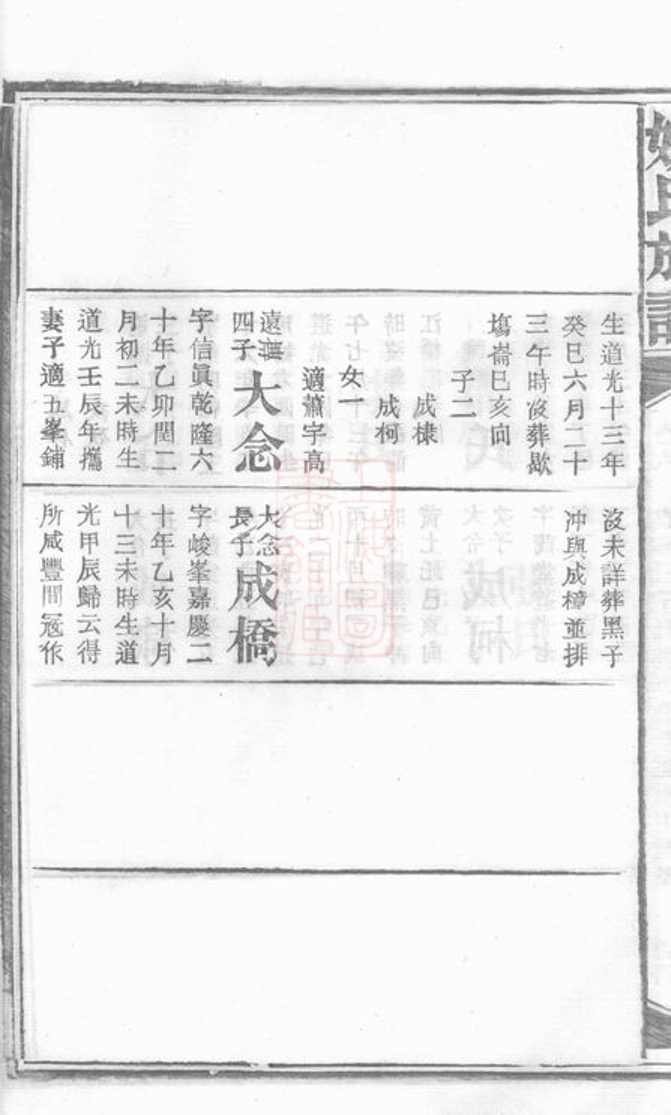 姚氏族譜
生道光十三年
癸巳六月二十
三午時歿葬歇
塲崙巳亥向
子二
成棣
成柯
女一
適蕭宇高
遠謨
四子
大念
字信眞乾隆六
十年乙卯閏二
月初二未時生
道光壬辰年攜
妻子適五峯鋪
沒未詳葬黑子
沖與成樟並排
大念
長子
成橋
字峻峯嘉慶二
十年乙亥十月
十三未時生道
光甲辰歸云得
所咸豐間寇作
上海圖書館藏